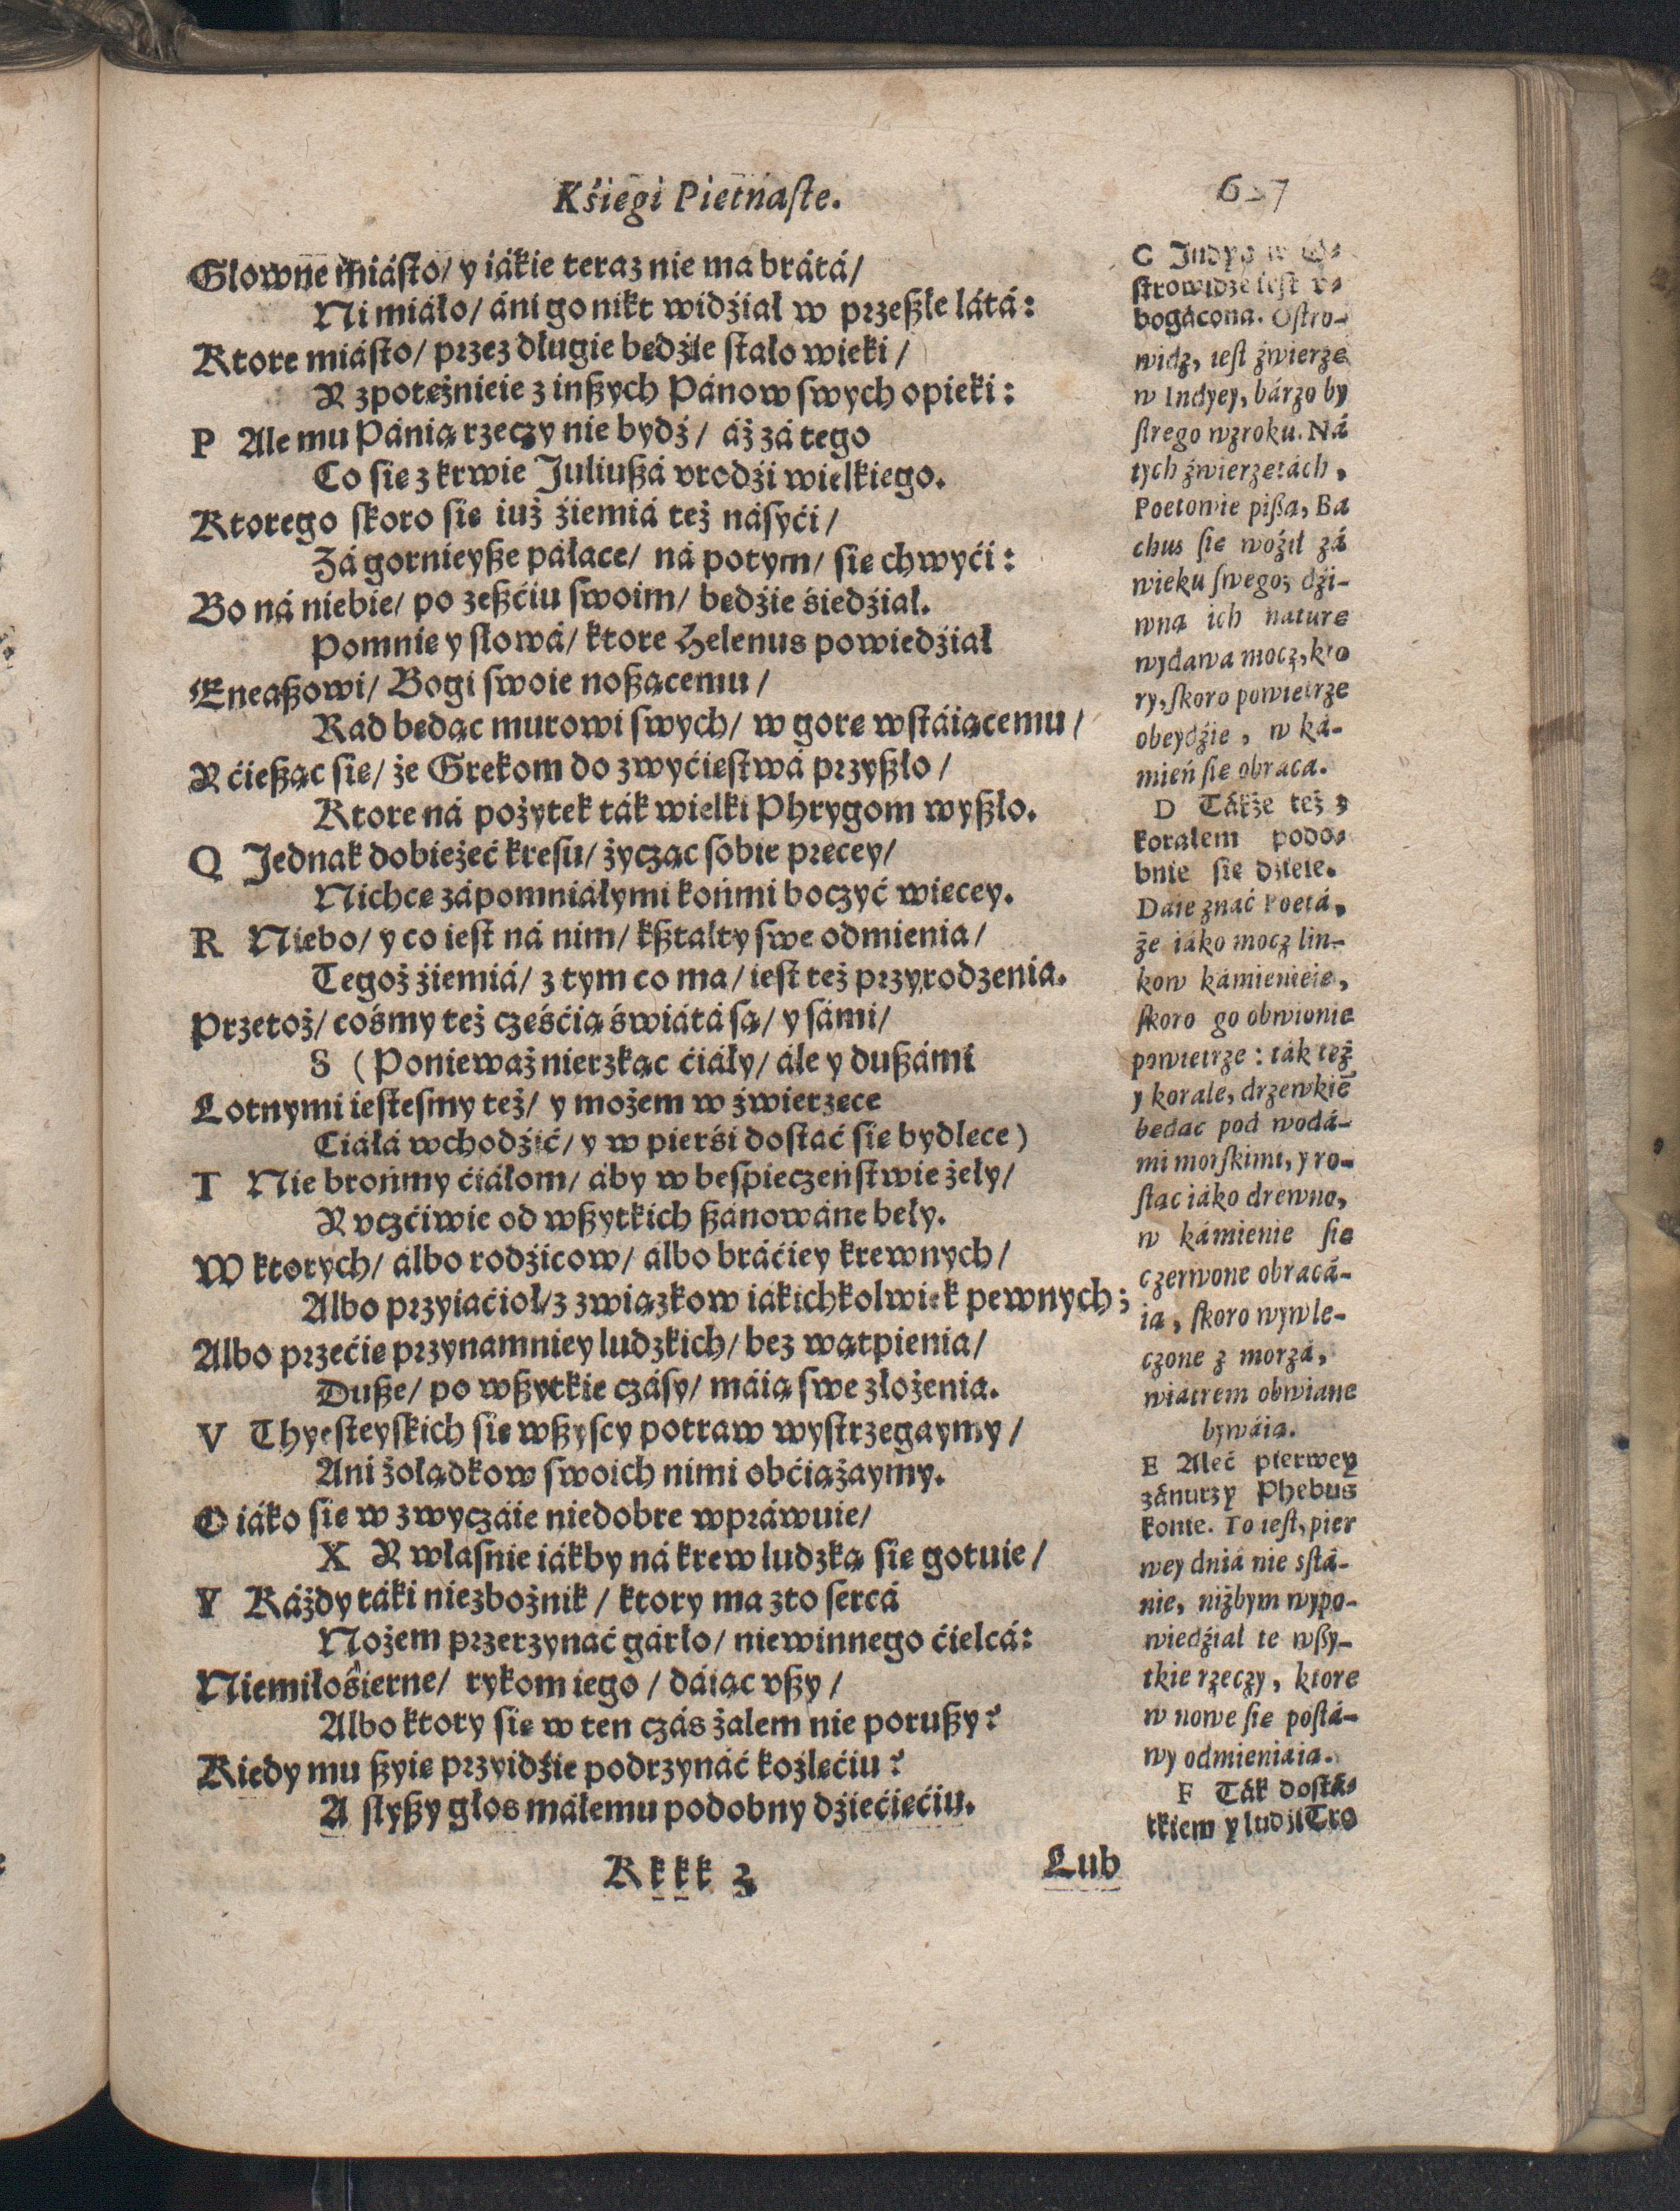 Kśięgi Piętnaſte.
Głowne miáſto/ y iákie teraz nie ma brátá/
Ni miáło/ áni go nikt widźiał w przeßłe látá:
Ktore miáſto/ przez długie będźie ſtało wieki/
A zpotężnieie z inßych Pánow ſwych opieki:
P Ale mu Pánią rzeczy nie bydź/ áż zá tego
Co ſię z krwie Juliußá vrodźi wielkiego.
Ktorego ſkoro ſię iuż źiemiá też náſyći/
Zá gornieyße páłace/ ná potym/ ſię chwyći:
Bo ná niebie/ po zeßćiu ſwoim/ będźie śiedźiał.
Pomnię y ſłowá/ ktore Helenus powiedźiał
Eneaßowi/ Bogi ſwoie noßącemu/
Rad będąc murowi ſwych/ w gorę wſtáiącemu/
A ćießąc ſię/ że Grekom do zwyćięſtwá przyßło/
Ktore ná pożytek ták wielki Phrygom wyßło.
Q Jednak dobieżeć kreſu/ życząc ſobie przecęy/
Nichcę zápomniáłymi końmi boczyć więcey.
R Niebo/ y co ieſt ná nim/ kßtałty ſwe odmienia/
Tegoż źiemiá/ z tym co ma/ ieſt też przyrodzenia.
Przetoż/ cośmy też cześćią świátá ſą/ y ſámi/
S (Ponieważ nierzkąc ćiáły/ ále y dußámi
Lotnymi ieſteſmy też/ y możem w źwierzęce
Ciáłá wchodźić/ y w pierśi doſtać ſię bydlęce)
T Nie brońmy ćiáłom/ áby w beſpieczeńſtwie żeły/
A vczćiwie od wßytkich ßánowáne beły.
W ktorych/ álbo rodźicow/ álbo bráćiey krewnych/
Albo przyiaćioł/ z związkow iákichkolwiek pewnych;
Albo przećię przynamniey ludzkich/ bez wątpienia/
Duße/ po wßytkie czáſy/ máią ſwe złożenia.
V Thyeſteyſkich ſię wßyſcy potraw wyſtrzegaymy/
Ani żołądkow ſwoich nimi obćiążaymy.
O iáko ſię w zwyczáie niedobre wpráwuie/
X A właſnie iákby ná krew ludzką ſię gotuie/
Y Káżdy táki niezbożnik/ ktory ma zto ſercá
Nożem przerzynać gárło/ niewinnego ćielcá:
Niemiłośierne/ rykom iego/ dáiąc vßy/
Albo ktory ſię w ten czás żalem nie porußy?
Kiedy mu ßyię przyidźie podrzynáć koźlęćiu?
A ſłyßy głos máłemu podobny dźiećięćiu.
Kkkk 3
Lub
ſtrowidze ieſt v-
bogácona. Oſtro-
widz, ieſt źwierzę
w Indyey, bárzo by
ſtrego wzroku. Ná
tych źwierzętách,
Poetowie pißą, Ba
chus ſię woźił zá
wieku ſwego; dźi-
wną ich naturę
wydawa mocz, kto
ry, ſkoro powietrze
obeydźie, w ká-
mień ſię obraca.
D Tákże też z
koralem podo-
bnie ſię dźieie.
Daie znáć Poetá,
że iáko mocz lin-
kow kámienieie,
ſkoro go obwionie
powietrze: ták też
y korale, drzewkiē
będąc pod wodá-
mi morſkimi, y ro-
ſtąc iáko drewno,
w kámienie ſię
czerwone obracá-
ią, ſkoro wywle-
czone z morzá,
wiátrem obwiane
bywáią.
E Aleć pierwey
zánurzy Phebus
konie. To ieſt, pier
wey dniá nie sſtá-
nie, niżbym wypo-
wiedźiał te wßy-
tkie rzeczy, ktore
w nowe ſię poſtá-
wy odmieniáią.
F Ták doſtá-
tkiem y ludźi Tro